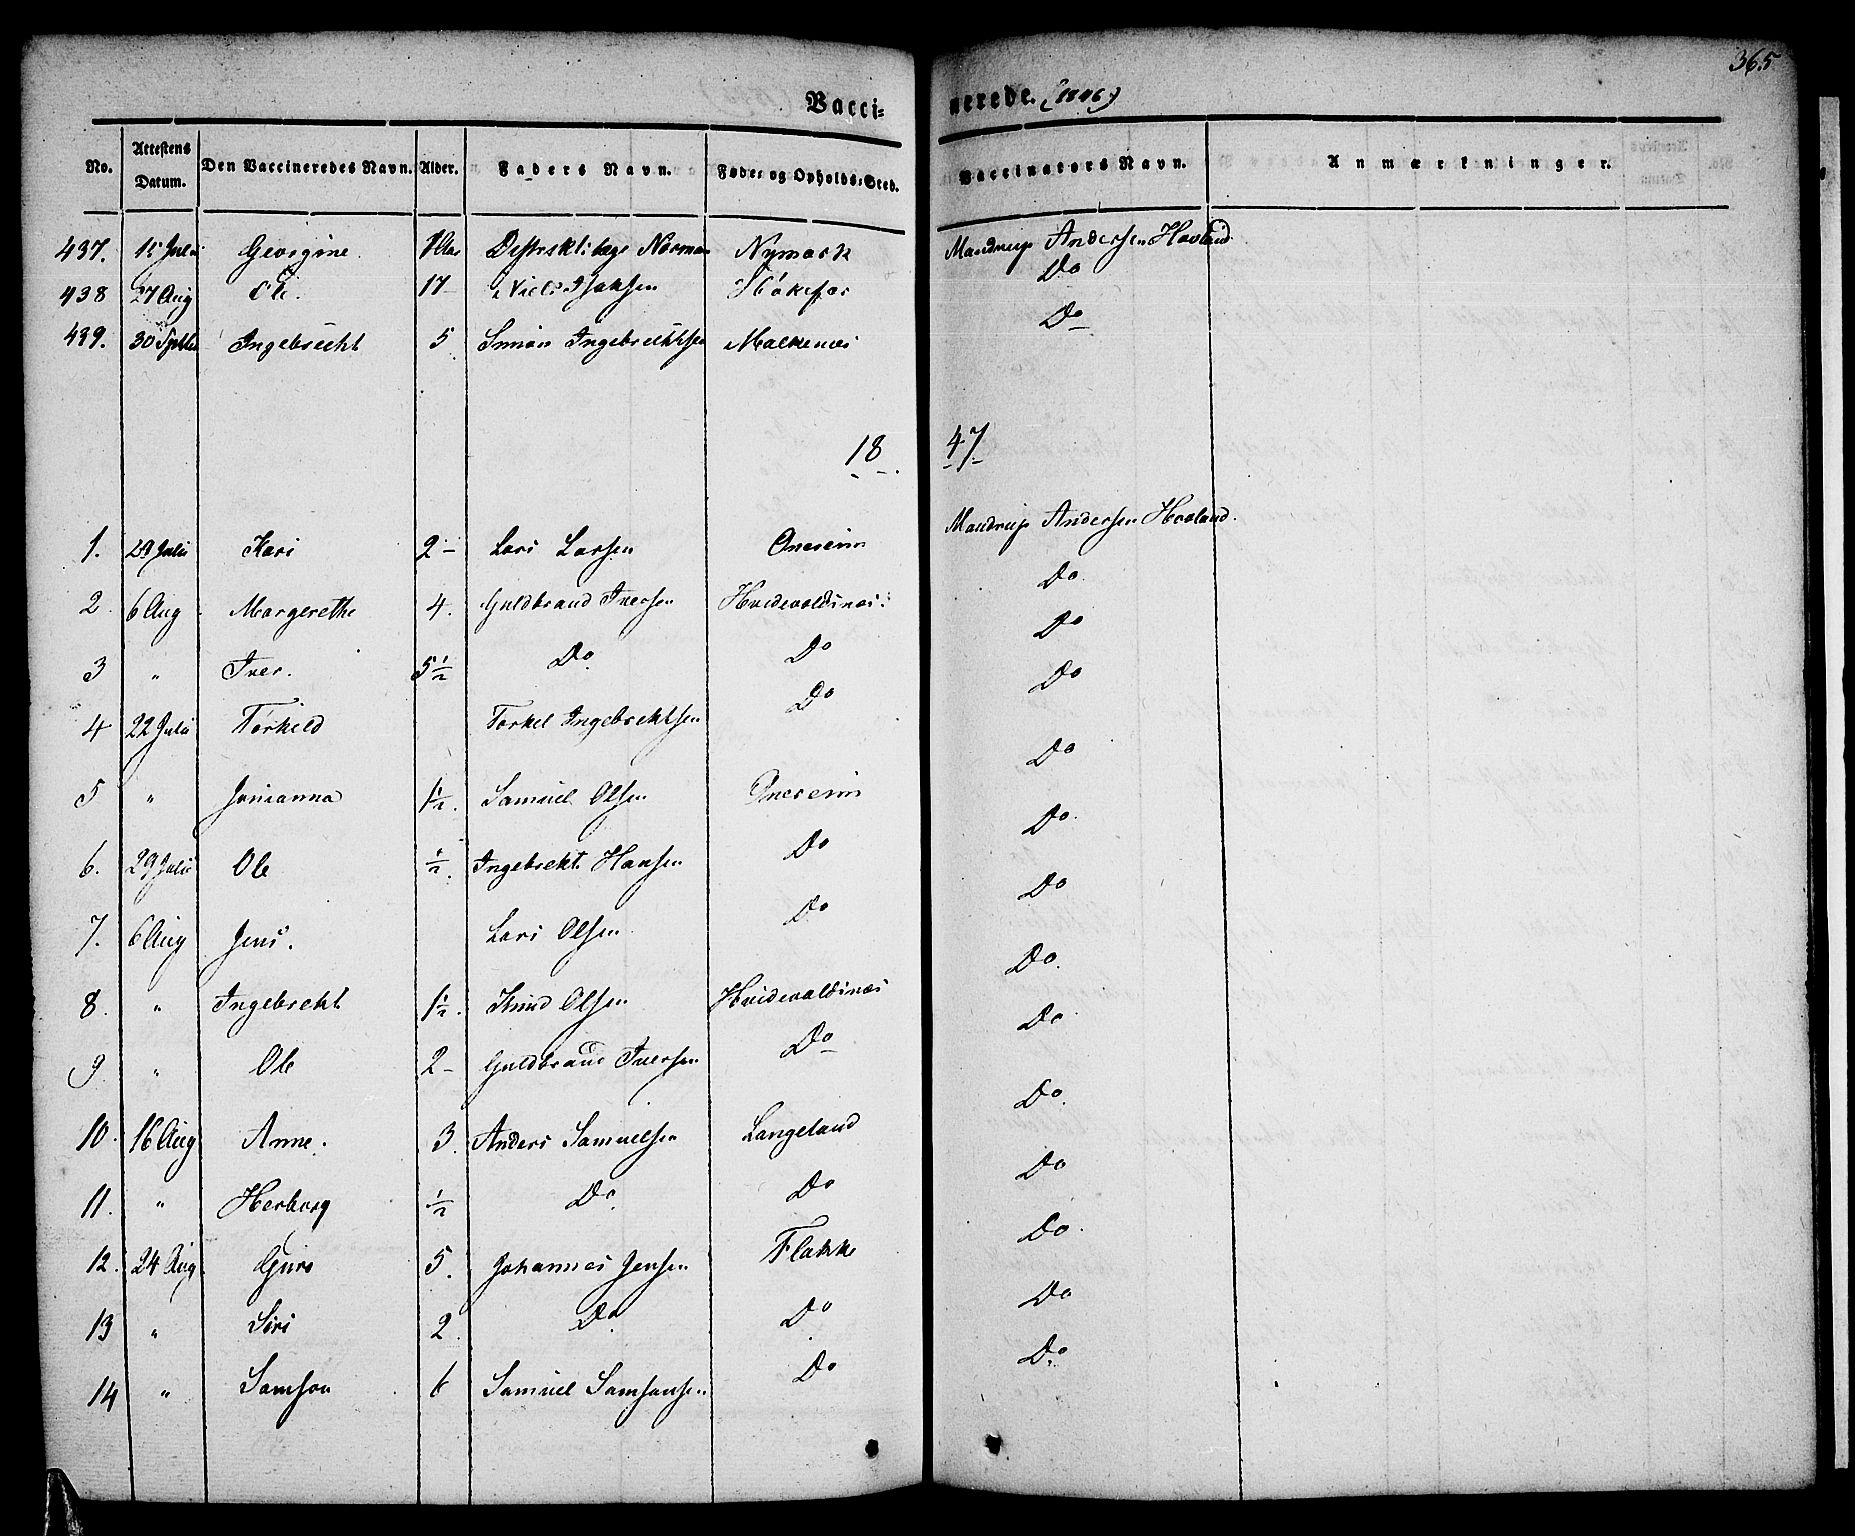 365
Vaccinerede. (1846)
No. Attestens Datum. Den Vaccineredes Navn. Alder. Faders Navn. Føde- og Opholds-Sted. Vaccinators Navn. Anmærkninger.
437. 15 Juli Georgine 1 Aar Destrsktslæge Norman Nymark Mandrup Andersen Havland.
438 27 Aug Ole. 17 Niels Do
439. 30 Septbr Ingebrecht 5 Simon Ingebrechtsen Malkenæs Do
18 47
1. 29 Juli Kari 2 Lars Larsen Oneseim Mandrup Andersen Hovland.
2. 6 Aug Margerethe 4. Guldbrand Iversen Hvidevoldsnæs. Do.
3 " Iver. 5 1/2 Do. Do Do
4 22 Juli Torkeld Torkel Ingebrektsen Do Do
5 " Janianna 1 1/2. Samuel Olsen Oneseim Do
6. 29 Juli Ole 1/2. Ingebrekt Hansen Do Do.
7. 6 Aug Jens. Lars Olsen Do Do
8. " Ingebrekt 1 1/2. Knud Olsen Hvidevoldsnæs Do.
9. " Ole 2 Guldbrand Iversen Do Do
10. 16 Aug Anne. 3. Anders Samuelsen Langeland Do.
11. " Herborg 1/2 Do. Do Do
12. 24 Aug Guro 5. Johannes Jensen Flakke Do.
13 " Siri 2. Do Do Do
14 " Samson 6 Samuel Samsonsen Do Do